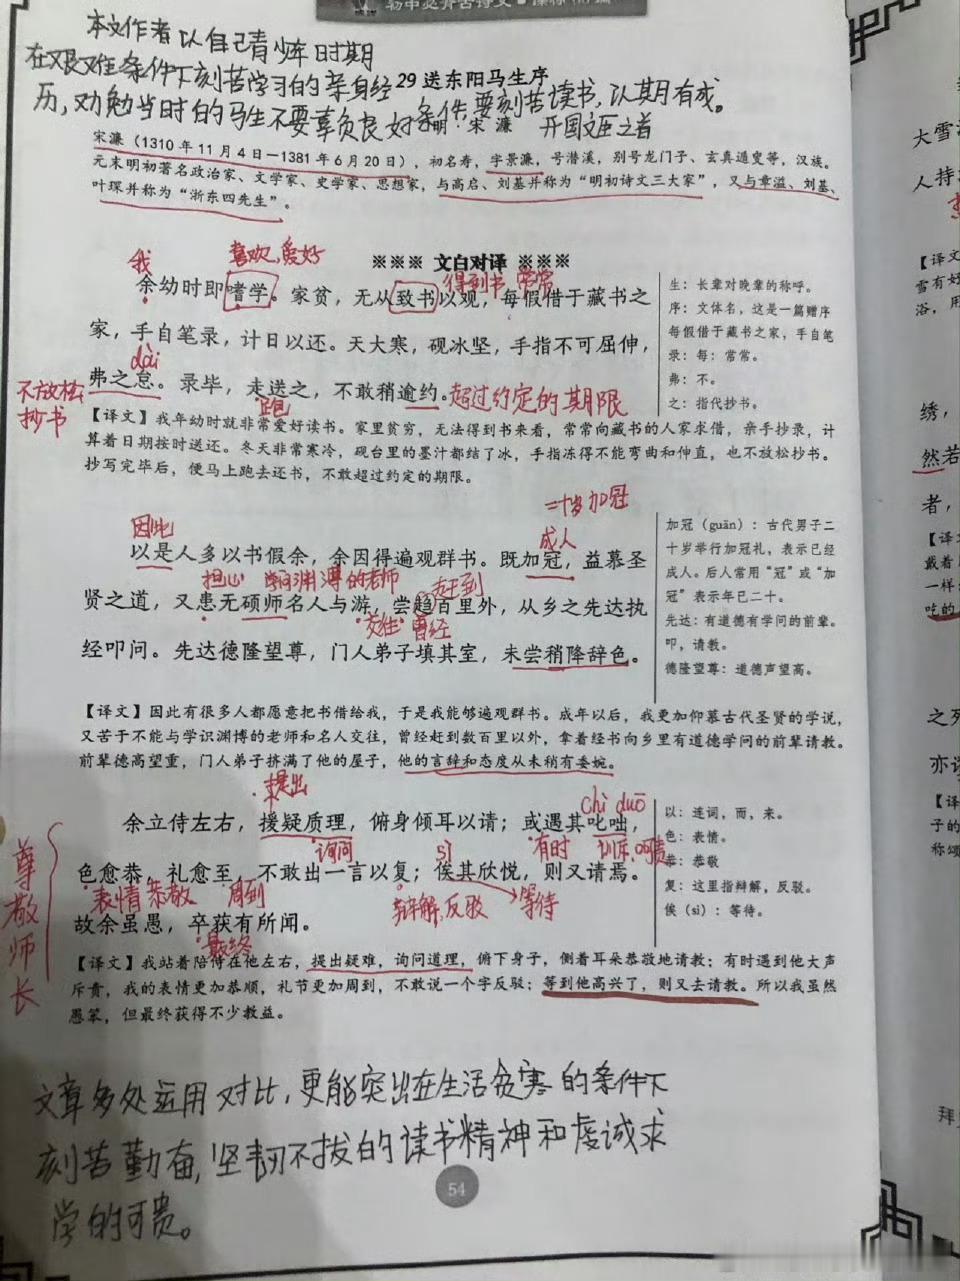 初中必背古诗文
本文作者以自己青少年时期
在艰难条件下刻苦学习的亲身经
29 送东阳马生序
历，劝勉当时的马生不要辜负良好条件，要刻苦读书，以期有成。
明·宋濂 开国文臣之首
宋濂（1310年11月4日—1381年6月20日），初名寿，字景濂，号潜溪，别号龙门子、玄真遁叟等，汉族。
元末明初著名政治家、文学家、史学家、思想家，与高启、刘基并称为“明初诗文三大家”，又与章溢、刘基、
叶琛并称为“浙东四先生”。
※※※ 文白对译 ※※※
我 喜欢，爱好
得到书 常常
余幼时即嗜学。家贫，无从致书以观，每假借于藏书之
家，手自笔录，计日以还。天大寒，砚冰坚，手指不可屈伸，
dài
弗之怠。录毕，走送之，不敢稍逾约。超过约定的期限
不放松
抄书
跑
生：长辈对晚辈的称呼。
序：文体名，这是一篇赠序
每假借于藏书之家，手自笔
录：每：常常。
弗：不。
之：指代抄书。
【译文】我年幼时就非常爱好读书。家里贫穷，无法得到书来看，常常向藏书的人家求借，亲手抄录，计
算着日期按时送还。冬天非常寒冷，砚台里的墨汁都结了冰，手指冻得不能弯曲和伸直，也不放松抄书。
抄写完毕后，便马上跑去还书，不敢超过约定的期限。
二十岁加冠
因此 成人
以是人多以书假余，余因得遍观群书。既加冠，益慕圣
担心 学问渊博的老师 赶到
贤之道，又患无硕师名人与游，尝趋百里外，从乡之先达执
交往 曾经
经叩问。先达德隆望尊，门人弟子填其室，未尝稍降辞色。
加冠（guān）：古代男子二
十岁举行加冠礼，表示已经
成人。后人常用“冠”或“加
冠”表示年已二十。
先达：有道德有学问的前辈。
叩，请教。
德隆望尊：道德声望高。
【译文】因此有很多人都愿意把书借给我，于是我能够遍观群书。成年以后，我更加仰慕古代圣贤的学说，
又苦于不能与学识渊博的老师和名人交往，曾经赶到数百里以外，拿着经书向乡里有道德学问的前辈请教。
前辈德高望重，门人弟子挤满了他的屋子，他的言辞和态度从未稍有委婉。
提出
chì duō
余立侍左右，援疑质理，俯身倾耳以请；或遇其叱咄，
询问 有时 训斥，呵责
sì
色愈恭，礼愈至，不敢出一言以复；俟其欣悦，则又请焉。
表情 恭敬 周到 辩解，反驳 等待
故余虽愚，卒获有所闻。
最终
尊敬师长
以：连词，而，来。
色：表情。
恭：恭敬
复：这里指辩解，反驳。
俟（sì）：等待。
【译文】我站着陪侍在他左右，提出疑难，询问道理，俯下身子，侧着耳朵恭敬地请教；有时遇到他大声
斥责，我的表情更加恭顺，礼节更加周到，不敢说一个字反驳；等到他高兴了，则又去请教。所以我虽然
愚笨，但最终获得不少教益。
文章多处运用对比，更能突出在生活贫寒的条件下
刻苦勤奋，坚韧不拔的读书精神和虔诚求
学的可贵。
54
大雪
人持
【译文
雪有好
浴，用
绣，
然若
者，
【译
戴着
一样
吃的
之死
亦谬
【译
子的
称颂
拜